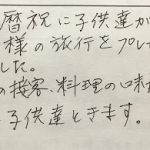 暦祝に子供達が
様の旅行をプレ
した。
の接客、料理の味
子供達ときます。